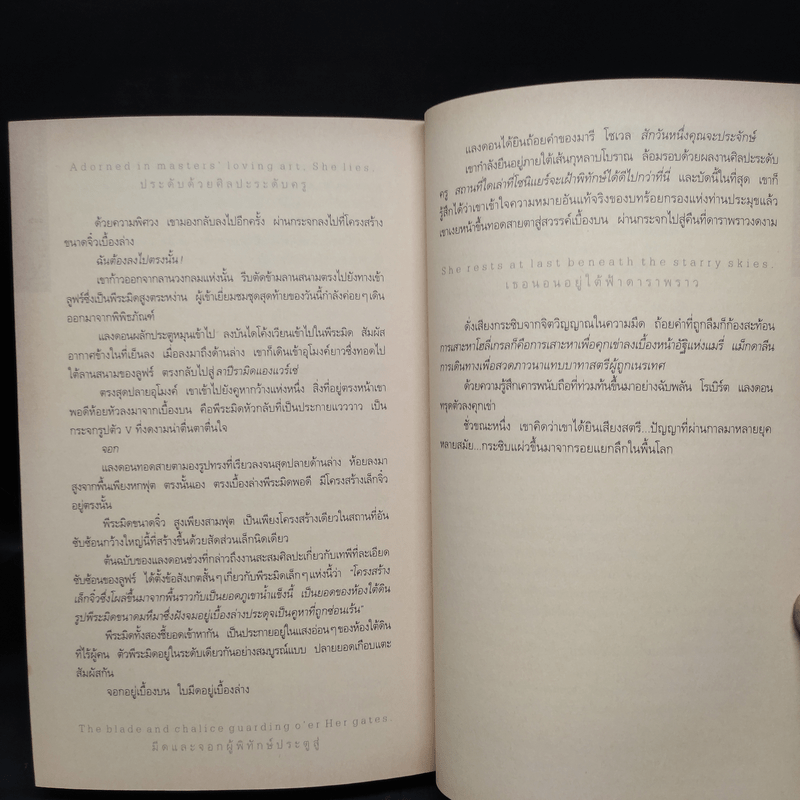 Adorned in masters' loving art, She lies.
ประดับด้วยศิลปะระดับครู
ด้วยความพิศวง เขามองกลับลงไปอีกครั้ง ผ่านกระจกลงไปที่โครงสร้าง
ขนาดจิ๋วเบื้องล่าง
ฉันต้องลงไปตรงนั้น!
เขาก้าวออกจากลานวงกลมแห่งนั้น รีบตัดข้ามลานสนามตรงไปยังทางเข้า
ลูฟร์ซึ่งเป็นพีระมิดสูงตระหง่าน ผู้เข้าเยี่ยมชมชุดสุดท้ายของวันนี้กำลังค่อยๆ เดิน
ออกมาจากพิพิธภัณฑ์
แลงดอนผลักประตูหมุนเข้าไป ลงบันไดโค้งเวียนเข้าไปในพีระมิด สัมผัส
อากาศข้างในที่เย็นลง เมื่อลงมาถึงด้านล่าง เขาก็เดินเข้าอุโมงค์ยาวซึ่งทอดไป
ใต้ลานสนามของลูฟร์ ตรงกลับไปสู่ ลาปีรามิดแองแวร์เซ่
ตรงสุดปลายอุโมงค์ เขาเข้าไปยังคูหากว้างแห่งหนึ่ง สิ่งที่อยู่ตรงหน้าเขา
พอดีห้อยหัวลงมาจากเบื้องบน คือพีระมิดหัวกลับที่เป็นประกายแวววาว เป็น
กระจกรูปตัว V ที่งดงามน่าตื่นตาตื่นใจ
จอก
แลงดอนทอดสายตามองรูปทรงที่เรียวลงจนสุดปลายด้านล่าง ห้อยลงมา
สูงจากพื้นเพียงหกฟุต ตรงนั้นเอง ตรงเบื้องล่างพีระมิดพอดี มีโครงสร้างเล็กจิ๋ว
อยู่ตรงนั้น
พีระมิดขนาดจิ๋ว สูงเพียงสามฟุต เป็นเพียงโครงสร้างเดียวในสถานที่อัน
ซับซ้อนกว้างใหญ่นี้ที่สร้างขึ้นด้วยสัดส่วนเล็กนิดเดียว
ต้นฉบับของแลงดอนช่วงที่กล่าวถึงงานสะสมศิลปะเกี่ยวกับเทพีที่ละเอียด
ซับซ้อนของลูฟร์ ได้ตั้งข้อสังเกตสั้นๆ เกี่ยวกับพีระมิดเล็กๆ แห่งนี้ว่า "โครงสร้าง
เล็กจิ๋วซึ่งโผล่ขึ้นมาจากพื้นราวกับเป็นยอดภูเขาน้ำแข็งนี้ เป็นยอดของห้องใต้ดิน
รูปพีระมิดขนาดมหึมาซึ่งฝังจมอยู่เบื้องล่างประดุจเป็นคูหาที่ถูกซ่อนเร้น"
พีระมิดทั้งสองชี้ยอดเข้าหากัน เป็นประกายอยู่ในแสงอ่อนๆ ของห้องใต้ดิน
ที่ไร้ผู้คน ตัวพีระมิดอยู่ในระดับเดียวกันอย่างสมบูรณ์แบบ ปลายยอดเกือบแตะ
สัมผัสกัน
จอกอยู่เบื้องบน ใบมีดอยู่เบื้องล่าง
The blade and chalice guarding o'er Her gates.
มีดและจอกผู้พิทักษ์ประตูสู่
แลงดอนได้ยินถ้อยคำของมารี โชเวล สักวันหนึ่งคุณจะประจักษ์
เขากำลังยืนอยู่ภายใต้เส้นกุหลาบโบราณ ล้อมรอบด้วยผลงานศิลปะระดับ
ครู สถานที่ใดเล่าที่โซนิแยร์จะเฝ้าพิทักษ์ได้ดีไปกว่าที่นี่ และบัดนี้ในที่สุด เขาก็
รู้สึกได้ว่าเขาเข้าใจความหมายอันแท้จริงของบทร้อยกรองแห่งท่านประมุขแล้ว
เขาเงยหน้าขึ้นทอดสายตาสู่สวรรค์เบื้องบน ผ่านกระจกไปสู่คืนที่ดาราพราวงดงาม
She rests at last beneath the starry skies.
เธอนอนอยู่ใต้ฟ้าดาราพราว
ดั่งเสียงกระซิบจากจิตวิญญาณในความมืด ถ้อยคำที่ถูกลืมก็ก้องสะท้อน
การเสาะหาโฮลีเกรลก็คือการเสาะหาเพื่อคุกเข่าลงเบื้องหน้าอัฐิแห่งแมรี่ แม็กดาลีน
การเดินทางเพื่อสวดภาวนาแทบบาทาสตรีผู้ถูกเนรเทศ
ด้วยความรู้สึกเคารพนับถือที่ท่วมท้นขึ้นมาอย่างฉับพลัน โรเบิร์ต แลงดอน
ทรุดตัวลงคุกเข่า
ชั่วขณะหนึ่ง เขาคิดว่าเขาได้ยินเสียงสตรี...ปัญญาที่ผ่านกาลมาหลายยุค
หลายสมัย...กระซิบแผ่วขึ้นมาจากรอยแยกลึกในพื้นโลก